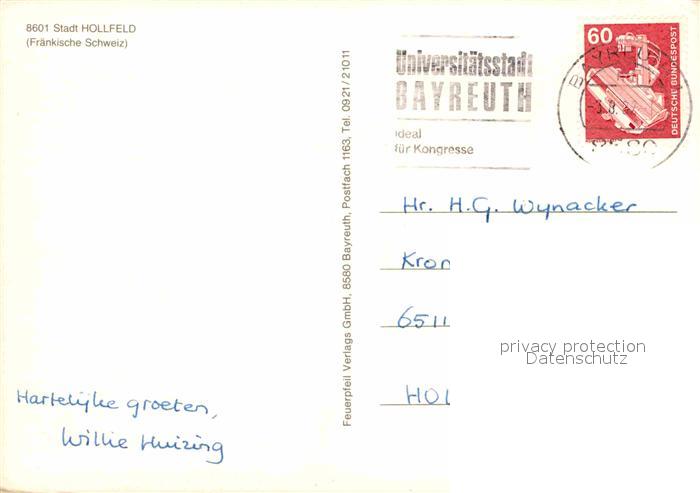 8601 Stadt HOLLFELD
(Fränkische Schweiz)
Universitätsstadt
BAYREUTH
ideal
für Kongresse
60
DEUTSCHE BUNDESPOST
Feuerpfeil Verlags GmbH, 8580 Bayreuth, Postfach 1163, Tel. 0921/21011
Hr. H.G. Wynacker
Kron
6511
HOL
privacy protection
Datenschutz
Hartelijke groeten,
Willie Huizing